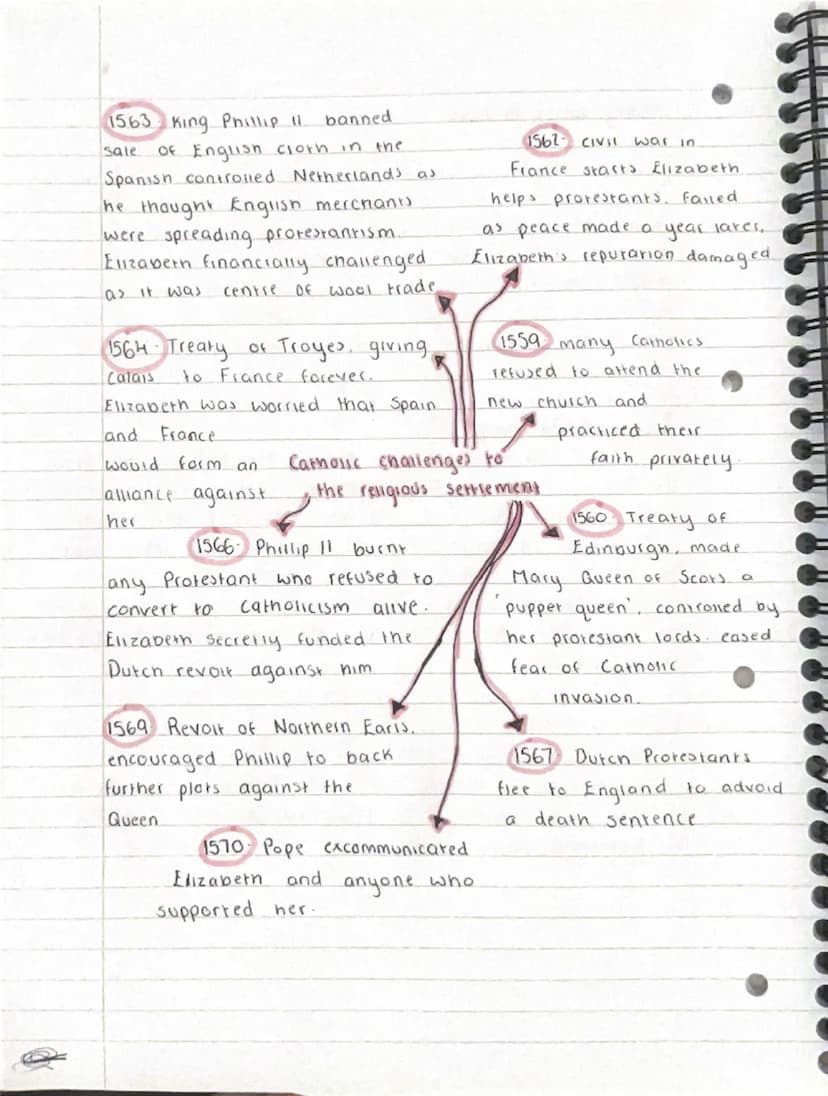 1563. King Phillip II banned
sale of English cloth in the
Spanish controlled Netherlands as
he thought English merchants
were spreading protestantism.
Elizabeth financially challenged
as it was centre of wool trade
1562. civil war in
France starts Elizabeth
helps protestants. failed
as peace made a year later.
Elizabeth's reputation damaged
1564. Treaty of Troyes, giving
Calais to France forever.
Elizabeth was worried that Spain
and France
would form an
alliance against
her
1559. many Catholics
refused to attend the
new church and
practiced their
faith privately.
Catholic challenges to
the religious settlement
1566. Phillip II burnt
any Protestant who refused to
convert to Catholicism alive.
Elizabeth secretly funded the
Dutch revolt against him
1560. Treaty of
Edinburgh, made
Mary Queen of Scots a
'puppet queen', controlled by
her protestant lords. eased
fear of Catholic
invasion.
1569. Revolt of Northern Earls,
encouraged Phillip to back
further plots against the
Queen
1567. Dutch Protestants
flee to England to advoid
a death sentence
1570. Pope excommunicated
Elizabeth and anyone who
supported her.